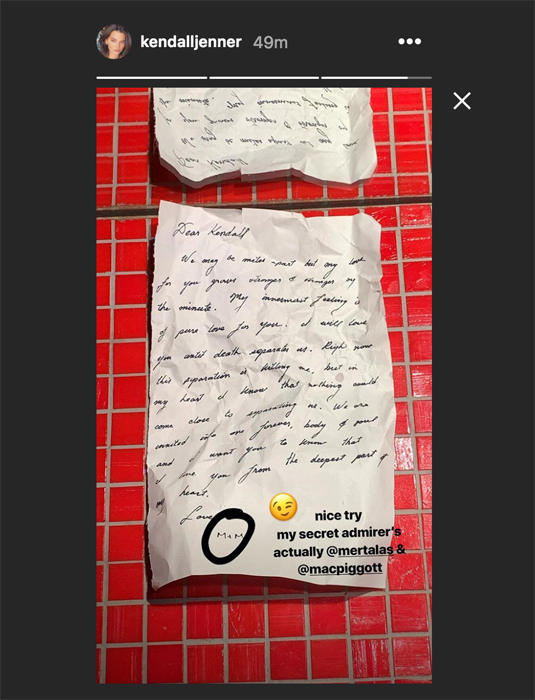 kendalljenner 49m
Dear Kendall
We may be miles-part but my love
for you grows stronger & stronger by
the minute. My innermost feeling is
of pure love for you. I will love
you until death separates us. Righ now
this separation is killing me, but in
my heart I know that nothing could
come close to separating me. We are
united into one forever, body & soul
and I want you to know that
I love you from the deepest part of
my heart.
Love
M+M
nice try
my secret admirer's
actually @mertalas &
@macpiggott